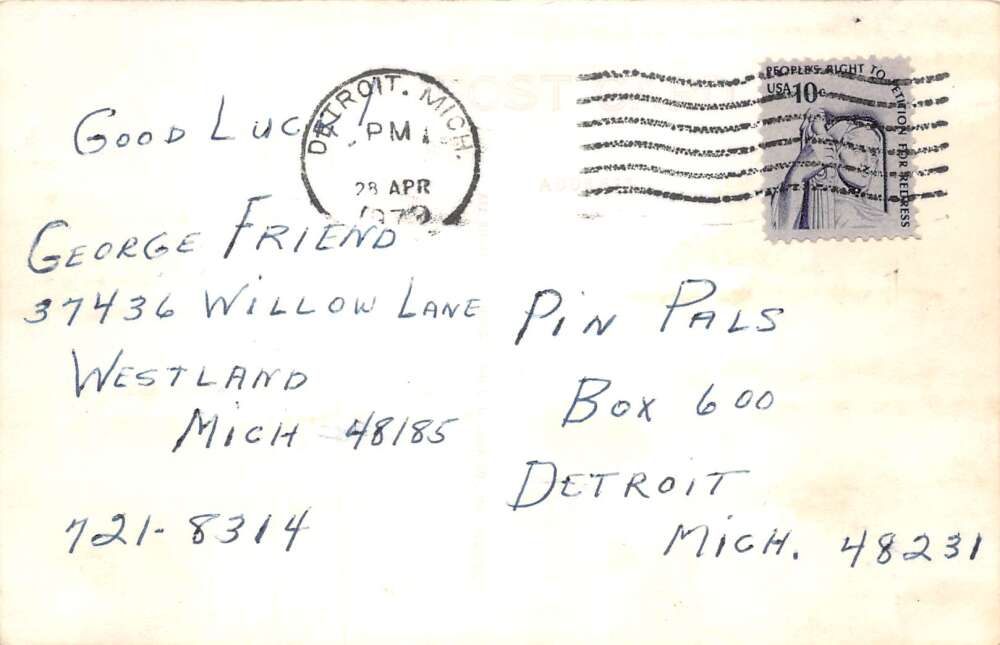 GOOD LUCK
DETROIT. MICH.
PM
28 APR
PEOPLE'S RIGHT TO PETITION FOR REDRESS
USA 10c
GEORGE FRIEND
37436 WILLOW LANE
WESTLAND
MICH 48185
721-8314
PIN PALS
BOX 600
DETROIT
MICH. 48231